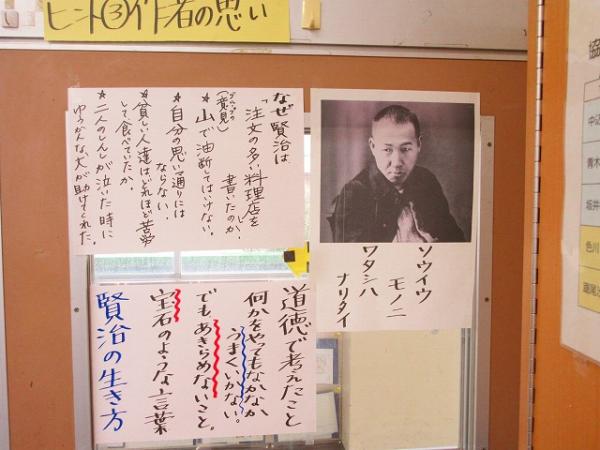 ヒント③作者の思い
なぜ賢治は
「注文の多い料理店を
書いたのか。
(意見)
★山で油断してはいけない。
★自分の思い通りには
ならない。
★貧しい人達はどれほど苦労
して、食べていたか。
★二人のしんしが泣いた時に
ゆうかんな、犬が助けてくれた。
ソウイウ
モノニ
ワタシハ
ナリタイ
道徳で考えたこと
何かをやってもなかなか
うまくいかない。
でもあきらめないこと。
宝石のような言葉
賢治の生き方
協
中辺
青木
坂井
色川
瀧尾